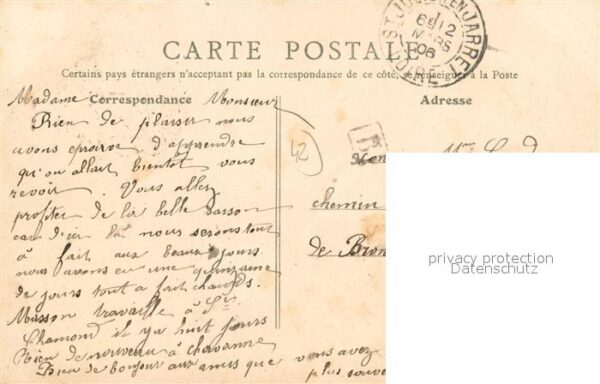 CARTE POSTALE
Certains pays étrangers n'acceptant pas la correspondance de ce côté, se renseigner à la Poste
Correspondance
Adresse
Madame Monsieur
Rien de plaisir nous
avons éproive d'apprendre
qu'on allait bientôt vous
revoir. Vous allez
profiter de la belle saison
car d'ici là nous serons tout
à fait aux beaux jours
nous avons eu une quinzaine
de jours tout à fait chauds.
Masson travaille à St
Chamond il ya huit jours
Rien de nouveau à chavanne
Bien de bonjour aux amis que vous avez
plus souve
42
chemin
de Bron
ST JULIEN EN JARRET
6E 12
MARS
06
LOIRE
privacy protection
Datenschutz